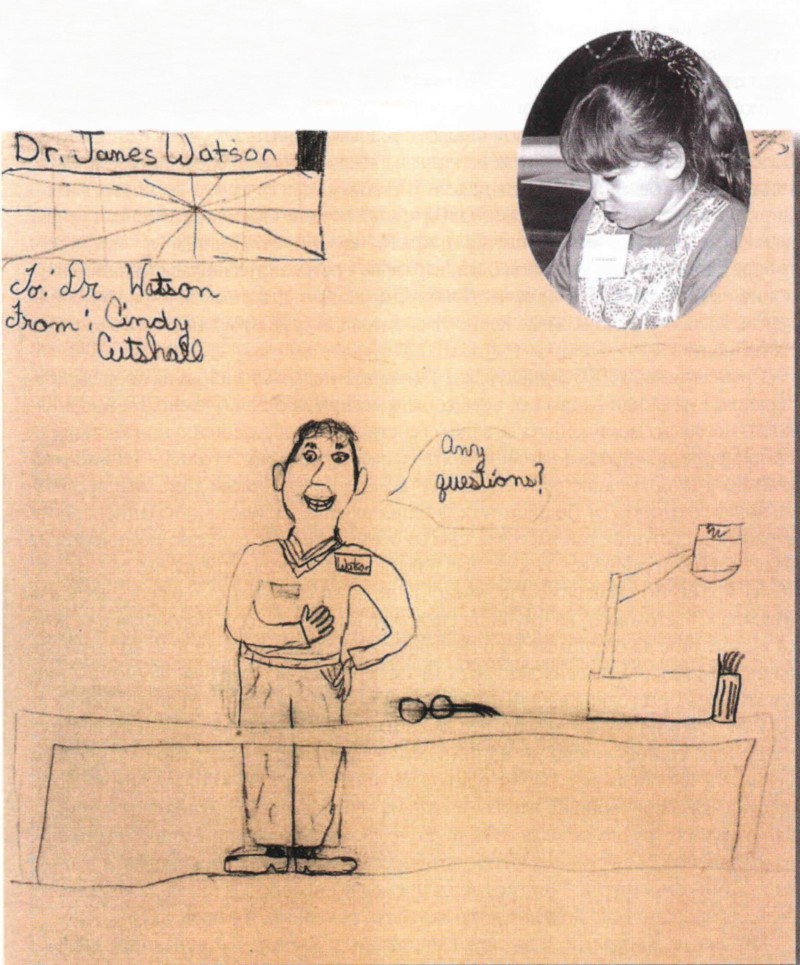 Dr. James Watson
To: Dr Watson
From: Cindy
Cutshall
Any
questions?
Watson